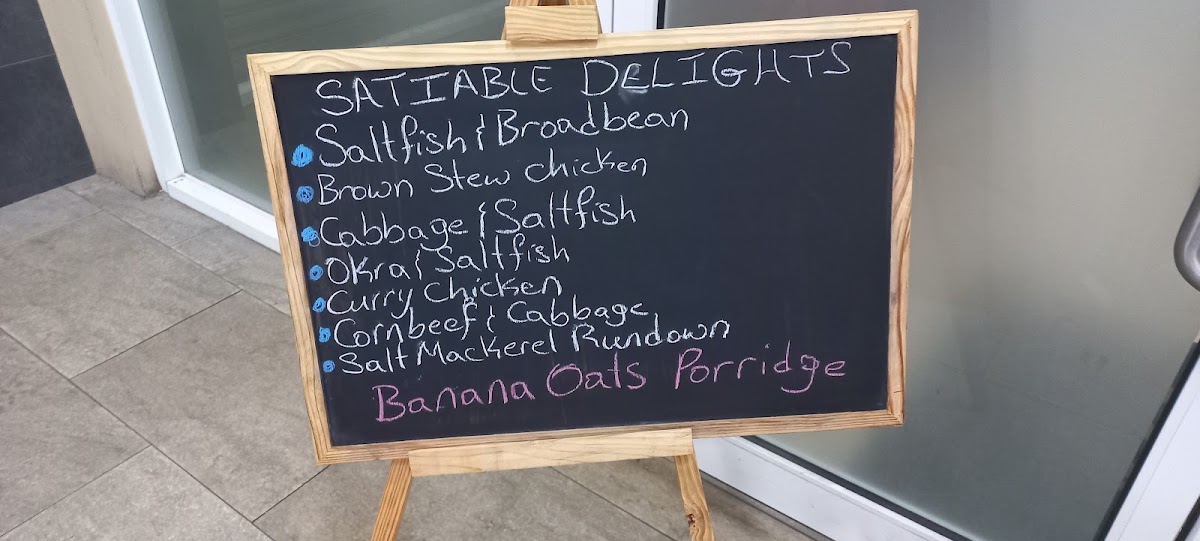 SATIABLE DELIGHTS
Saltfish & Broadbean
Brown Stew Chicken
Cabbage & Saltfish
Okra & Saltfish
Curry Chicken
Cornbeef & Cabbage
Salt Mackerel Rundown
Banana Oats Porridge